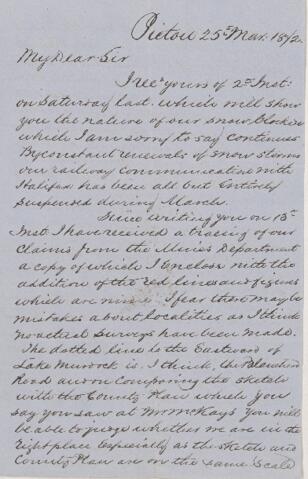 Pictou 25th Mar. 1872
My Dear Sir
I recd yours of 2nd Inst.
on Saturday last which will show
you the nature of our snow blockade
which I am sorry to say continues
By constant renewals of snow storms
our railway communication with
Halifax has been all but Entirely
suspended during March.
Since writing you on 13th
Inst. I have received a tracing of our
Claims from the Mines Department
a copy of which I Enclose with the
addition of the red lines and figures
which are mine. I fear there may be
mistakes about localities as I think
no actual surveys have been made.
The dotted line to the Eastward of
Lake Murdock is, I think, the
Road and on comparing the sketch
with the County Plan which you
say you saw at Mr McKay's you will
be able to judge whether we are in the
right place Especially as the sketch and
County Plan are on the same scale